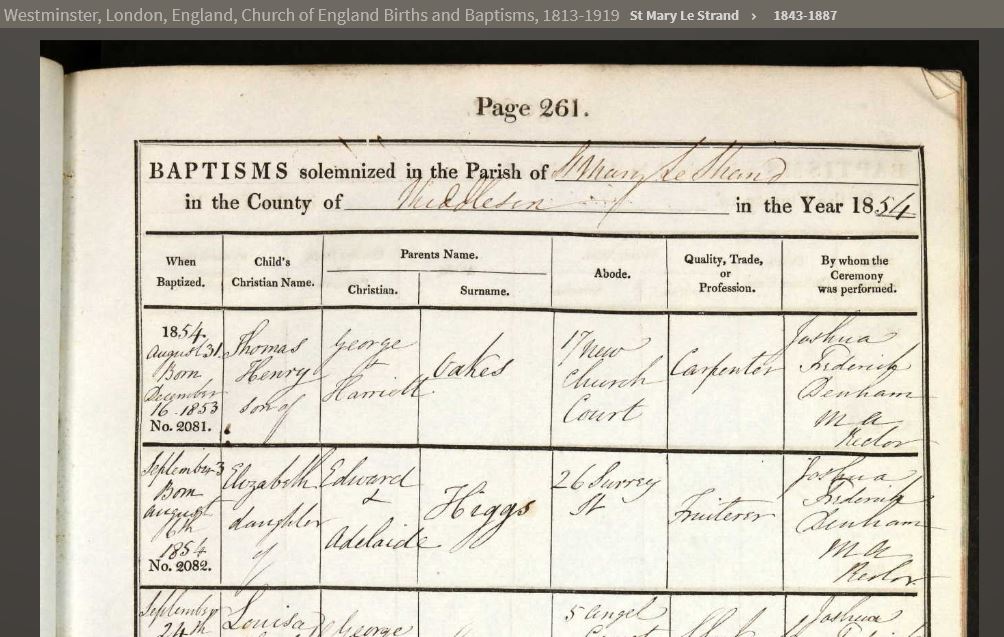 Westminster, London, England, Church of England Births and Baptisms, 1813-1919 St Mary Le Strand › 1843-1887
Page 261.
BAPTISMS solemnized in the Parish of St Mary Le Strand
in the County of Middlesex in the Year 1854
When Baptized.
Child's Christian Name.
Parents Name.
Christian.
Surname.
Abode.
Quality, Trade, or Profession.
By whom the Ceremony was performed.
1854.
August 31.
Born
December
16 1853
No. 2081.
Thomas
Henry
son of
George
&
Harriett
Oakes
17 New
Church
Court
Carpenter
Joshua
Frederick
Denham
M A
Rector
September 3
Born
August
6th
1854
No. 2082.
Elizabeth
daughter
of
Edward
&
Adelaide
Higgs
26 Surrey
St
Fruiterer
Joshua
Frederick
Denham
M A
Rector
September
24th
Louisa
George
5 Angel
Court
Joshua